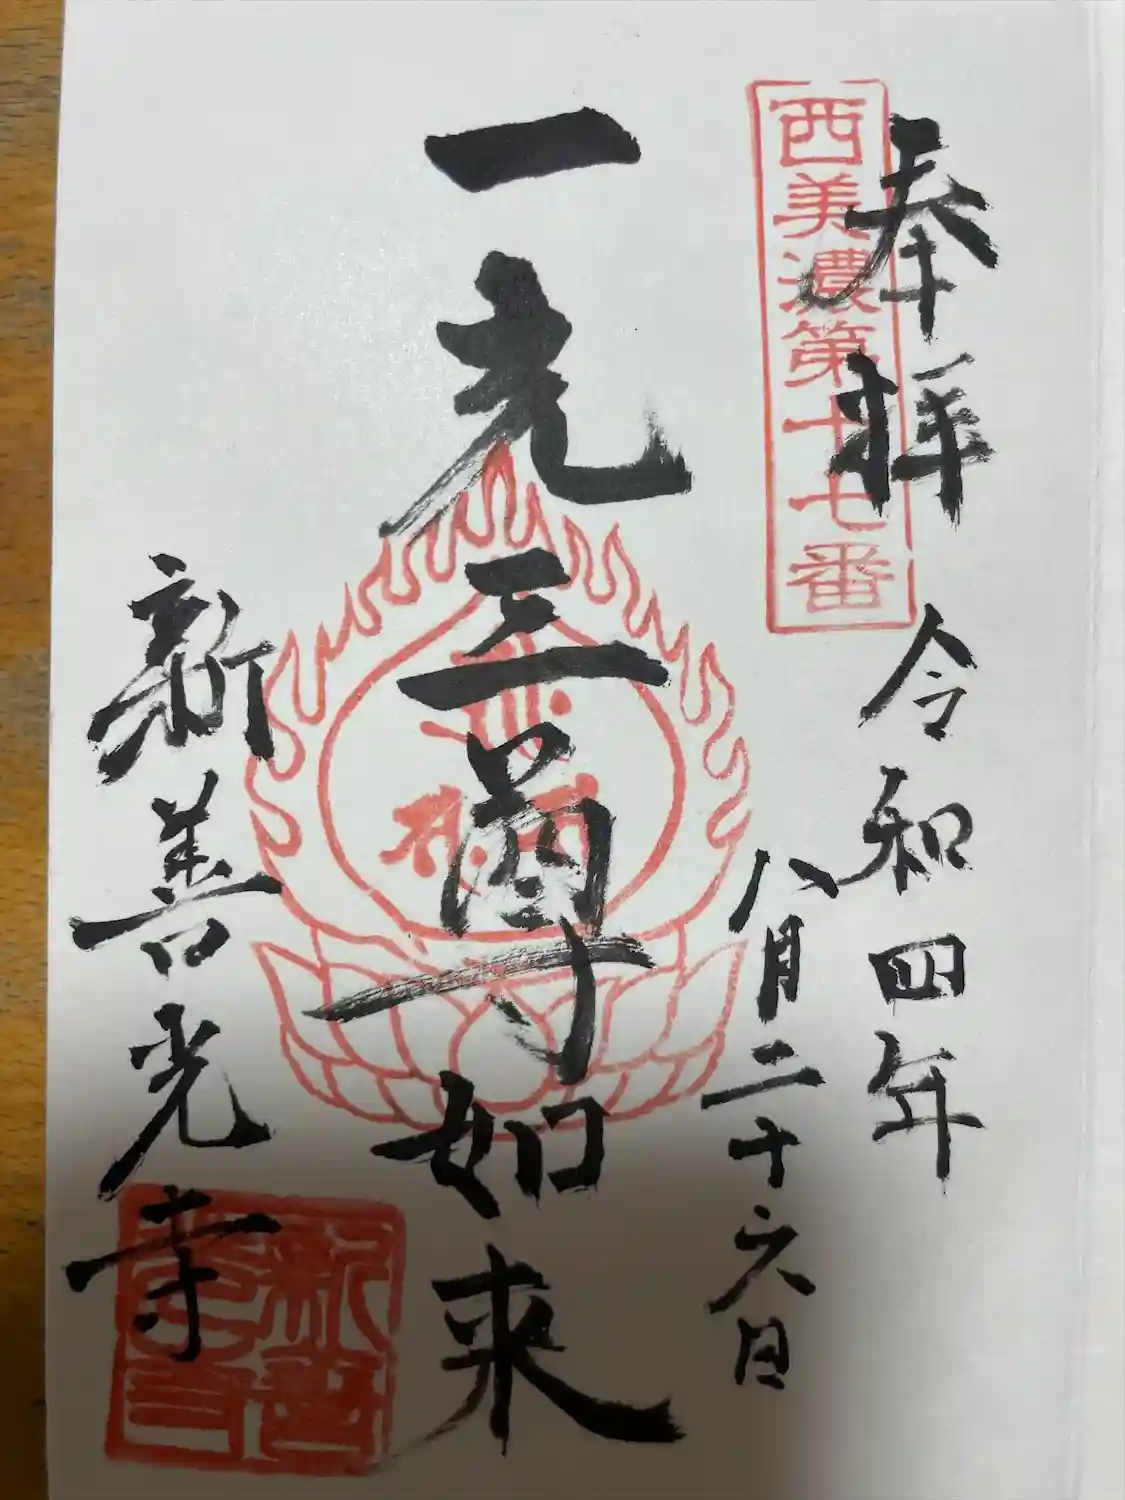 奉拝
西美濃第十七番
令和四年
八月二十六日
一光三尊如来
新善光寺